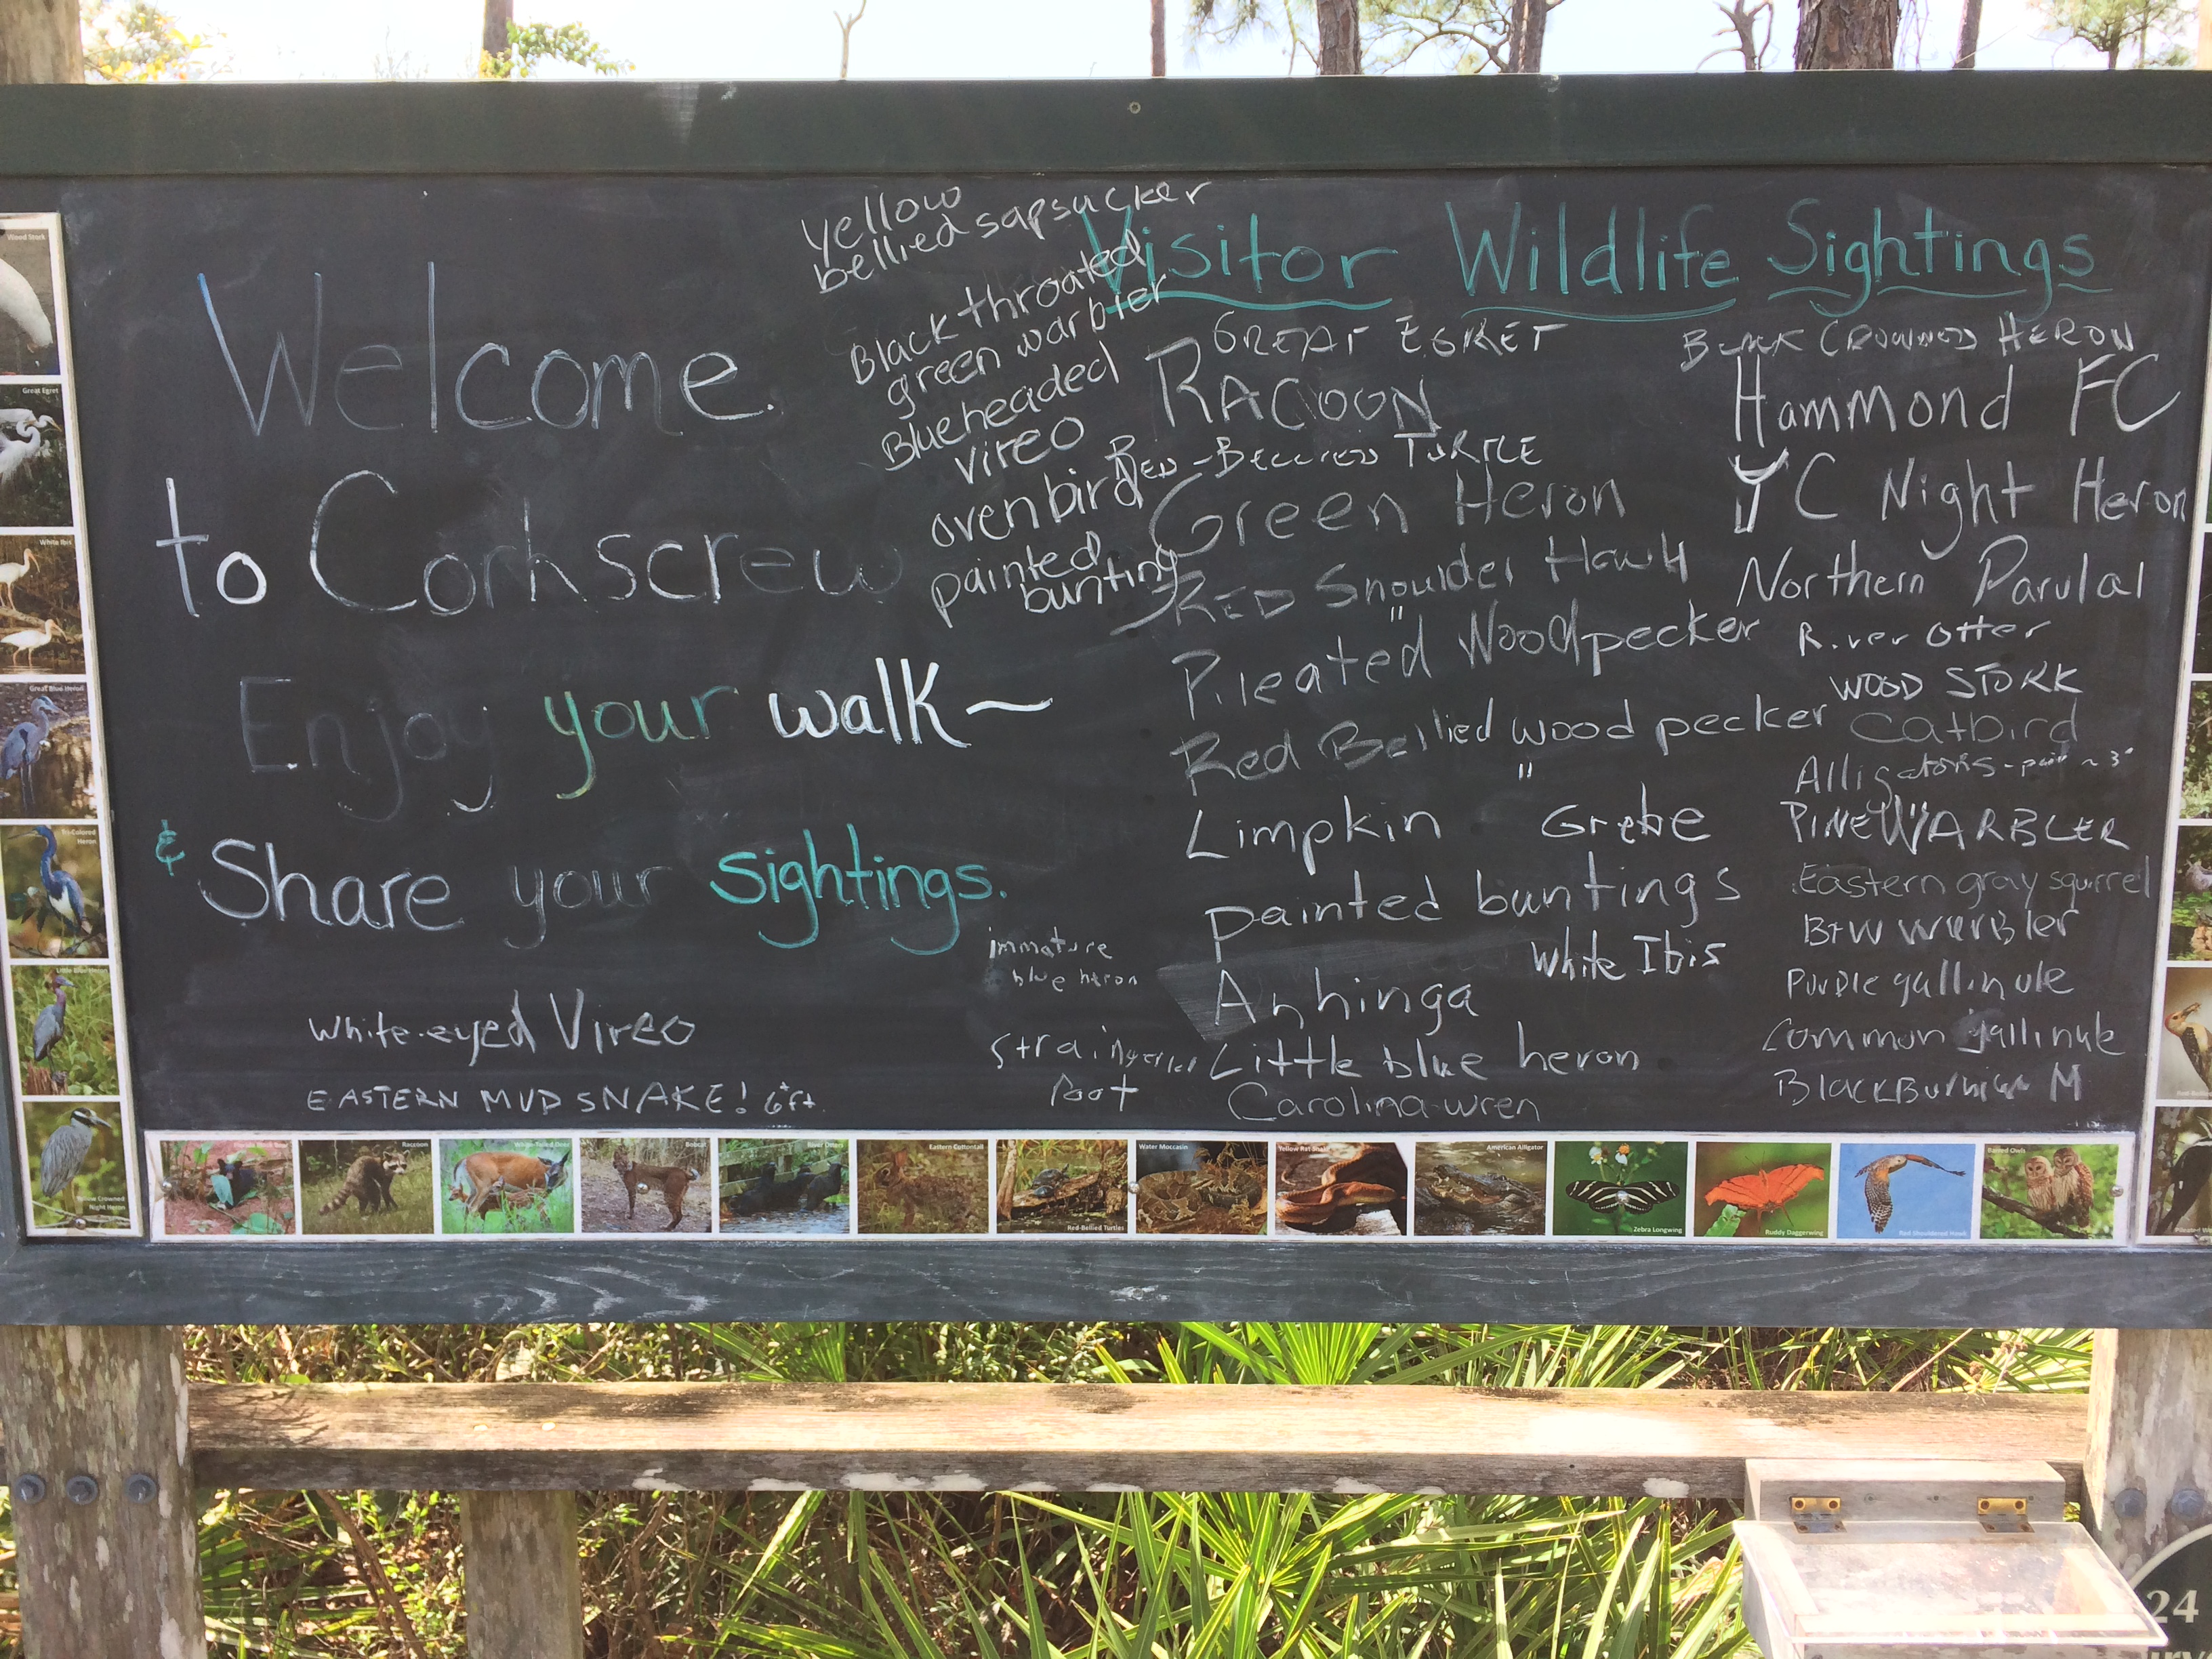 Welcome
to Corkscrew
Enjoy your walk~
& Share your sightings.
white-eyed Vireo
EASTERN MUD SNAKE! 6ft.
yellow
bellied sapsucker
Black throated
green warbler
Blueheaded
vireo
ovenbird
painted
bunting
immature
blue heron
Visitor Wildlife Sightings
GREAT EGRET
RACOON
RED-BELLIED TURTLE
Green Heron
RED Shoulder Hawk
"
Pileated Woodpecker
Red Bellied woodpecker
"
Limpkin Grebe
painted buntings
White Ibis
Anhinga
Little blue heron
Carolina wren
BLACK CROWNED HERON
Hammond FC
YC Night Heron
Northern Parulal
River Otter
WOOD STORK
Catbird
Alligators - pair ~3'
PINE WARBLER
Eastern gray squirrel
B+W warbler
Purple gallinule
Common gallinule
Wood Stork
Great Egret
White Ibis
Great Blue Heron
Tri-Colored
Heron
Little Blue Heron
Yellow Crowned
Night Heron
Raccoon
White-Tailed Deer
Bobcat
River Otter
Eastern Cottontail
Red-Bellied Turtles
Water Moccasin
Yellow Rat Snake
American Alligator
Zebra Longwing
Ruddy Daggerwing
Red Shouldered Hawk
Barred Owls
24